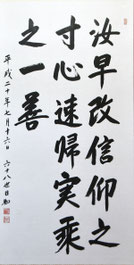 汝早改信仰之
寸心速帰実乗
之一善
平成二十年七月十六日
六十八世日如